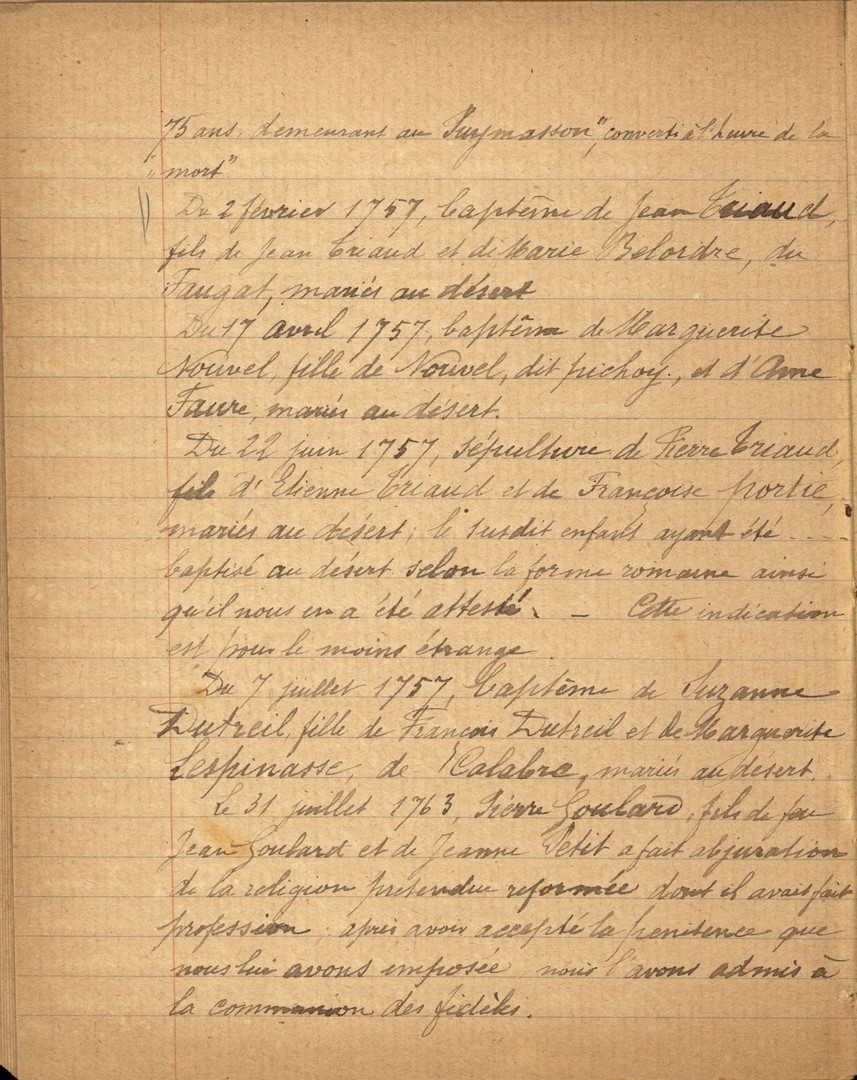 75 ans, demeurant au Puymasson", converti à l'heure de la
"mort"
Du 2 février 1757, baptême de Jean Criaud,
fils de Jean Criaud et de Marie Belordre, du
Faugat, mariés au désert
Du 17 avril 1757, baptême de Marguerite
Nouvel, fille de Nouvel, dit pichoy, et d'Anne
Faure, mariés au désert.
Du 22 juin 1757, sépulture de Pierre Criaud,
fils d'Etienne Criaud et de Françoise portié,
mariés au désert; le susdit enfant ayant été ....
baptisé au désert selon la forme romaine ainsi
qu'il nous en a été attesté. - Cette indication
est pour le moins étrange.
Du 7 juillet 1757, baptême de Suzanne
Dutreil, fille de François Dutreil et de Marguerite
Lespinasse, de Calabre, mariés au désert.
Le 31 juillet 1763, Pierre Goulard, fils de feu
Jean Goulard et de Jeanne Petit a fait abjuration
de la religion prétendue reformée dont il avait fait
profession; après avoir accepté la penitence que
nous lui avons imposée nous l'avons admis à
la communion des fidèles.